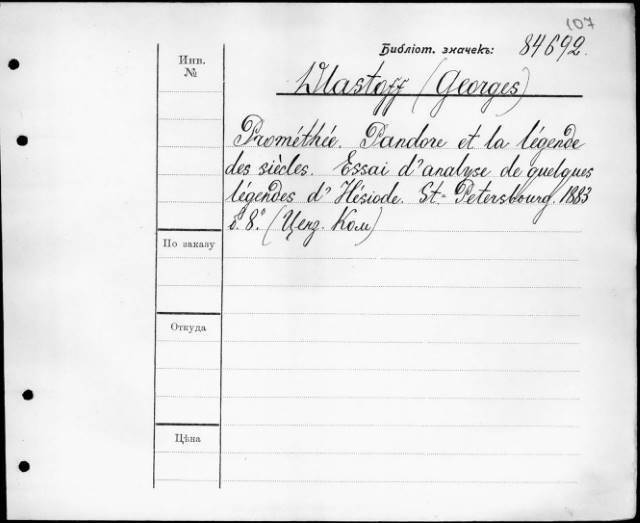 107
Библіот. значекъ: 84692.
Инв.
№
Wlastoff (Georges)
Prométhée. Pandore et la légende
des siècles. Essai d'analyse de quelques
légendes d'Hésiode. St.-Petersbourg. 1883
8.° (Ценз. Ком)
По заказу
Откуда
Цѣна